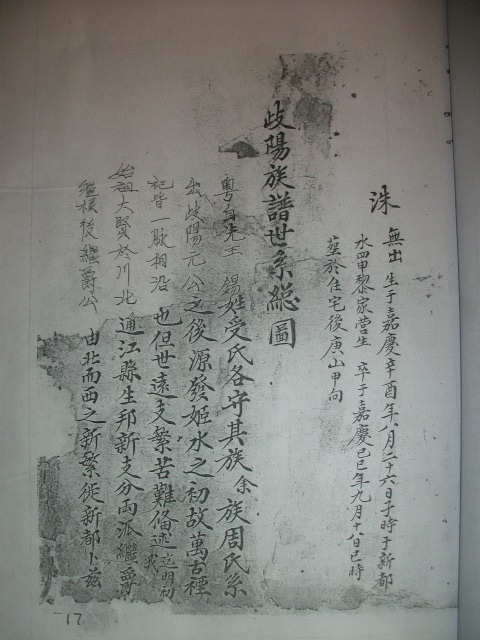 洙
無出 生于嘉慶辛酉年八月二十六日子時于新都
水四甲黎家营生 卒于嘉慶己巳年九月十八日巳時
塟於住宅後庚山甲向
歧陽族譜世系総圖
粵自先王 錫姓受氏各守其族余族周氏系
出歧陽元公之後源發姬水之初故萬古種
祀皆一脉相沿 也但世遠支繁苦難俻述 我
始祖大賢於川北通江縣生邦新支分两派繼爵
繼樑後繼爵公 由北而西之新繁徙新都卜兹
17